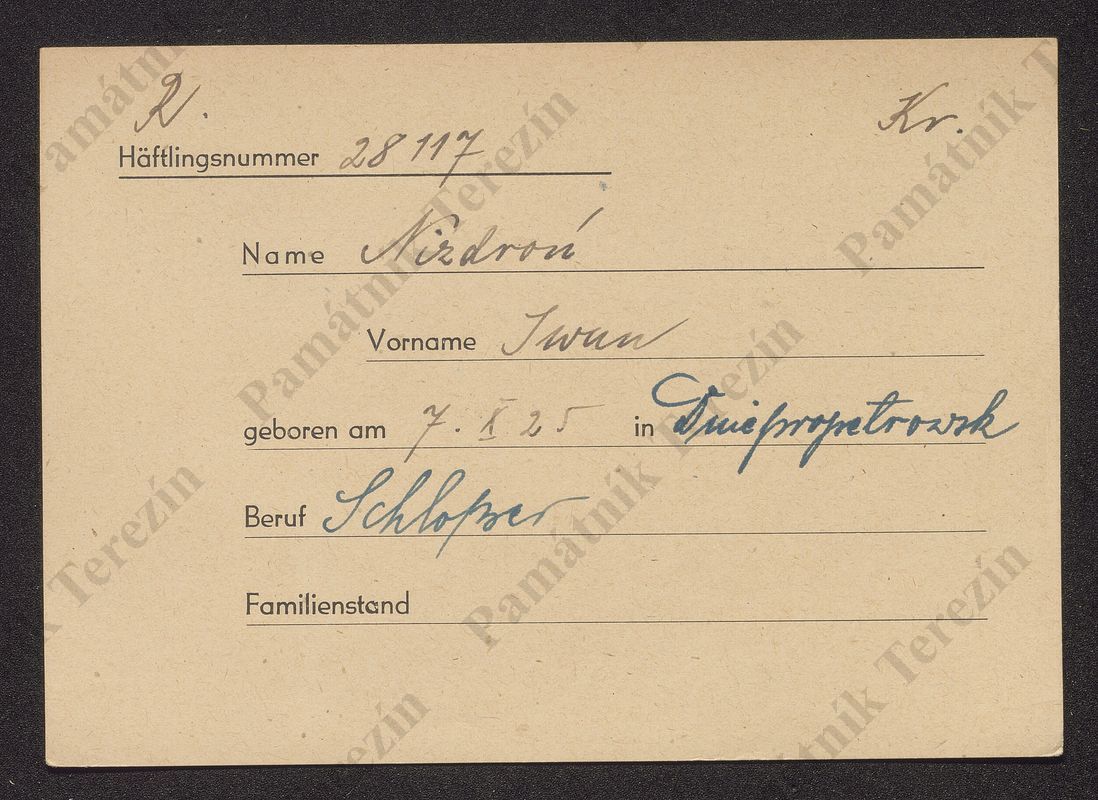 R. Kr.
Häftlingsnummer 28117
Name Nizdroń
Vorname Iwan
geboren am 7. X 25 in Dniepropetrowsk
Beruf Schloßer
Familienstand
Památník Terezín